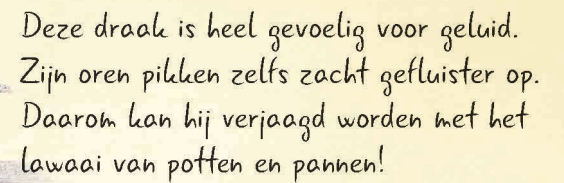 Deze draak is heel gevoelig voor geluid.
Zijn oren pikken zelfs zacht gefluister op.
Daarom kan hij verjaagd worden met het
lawaai van potten en pannen!